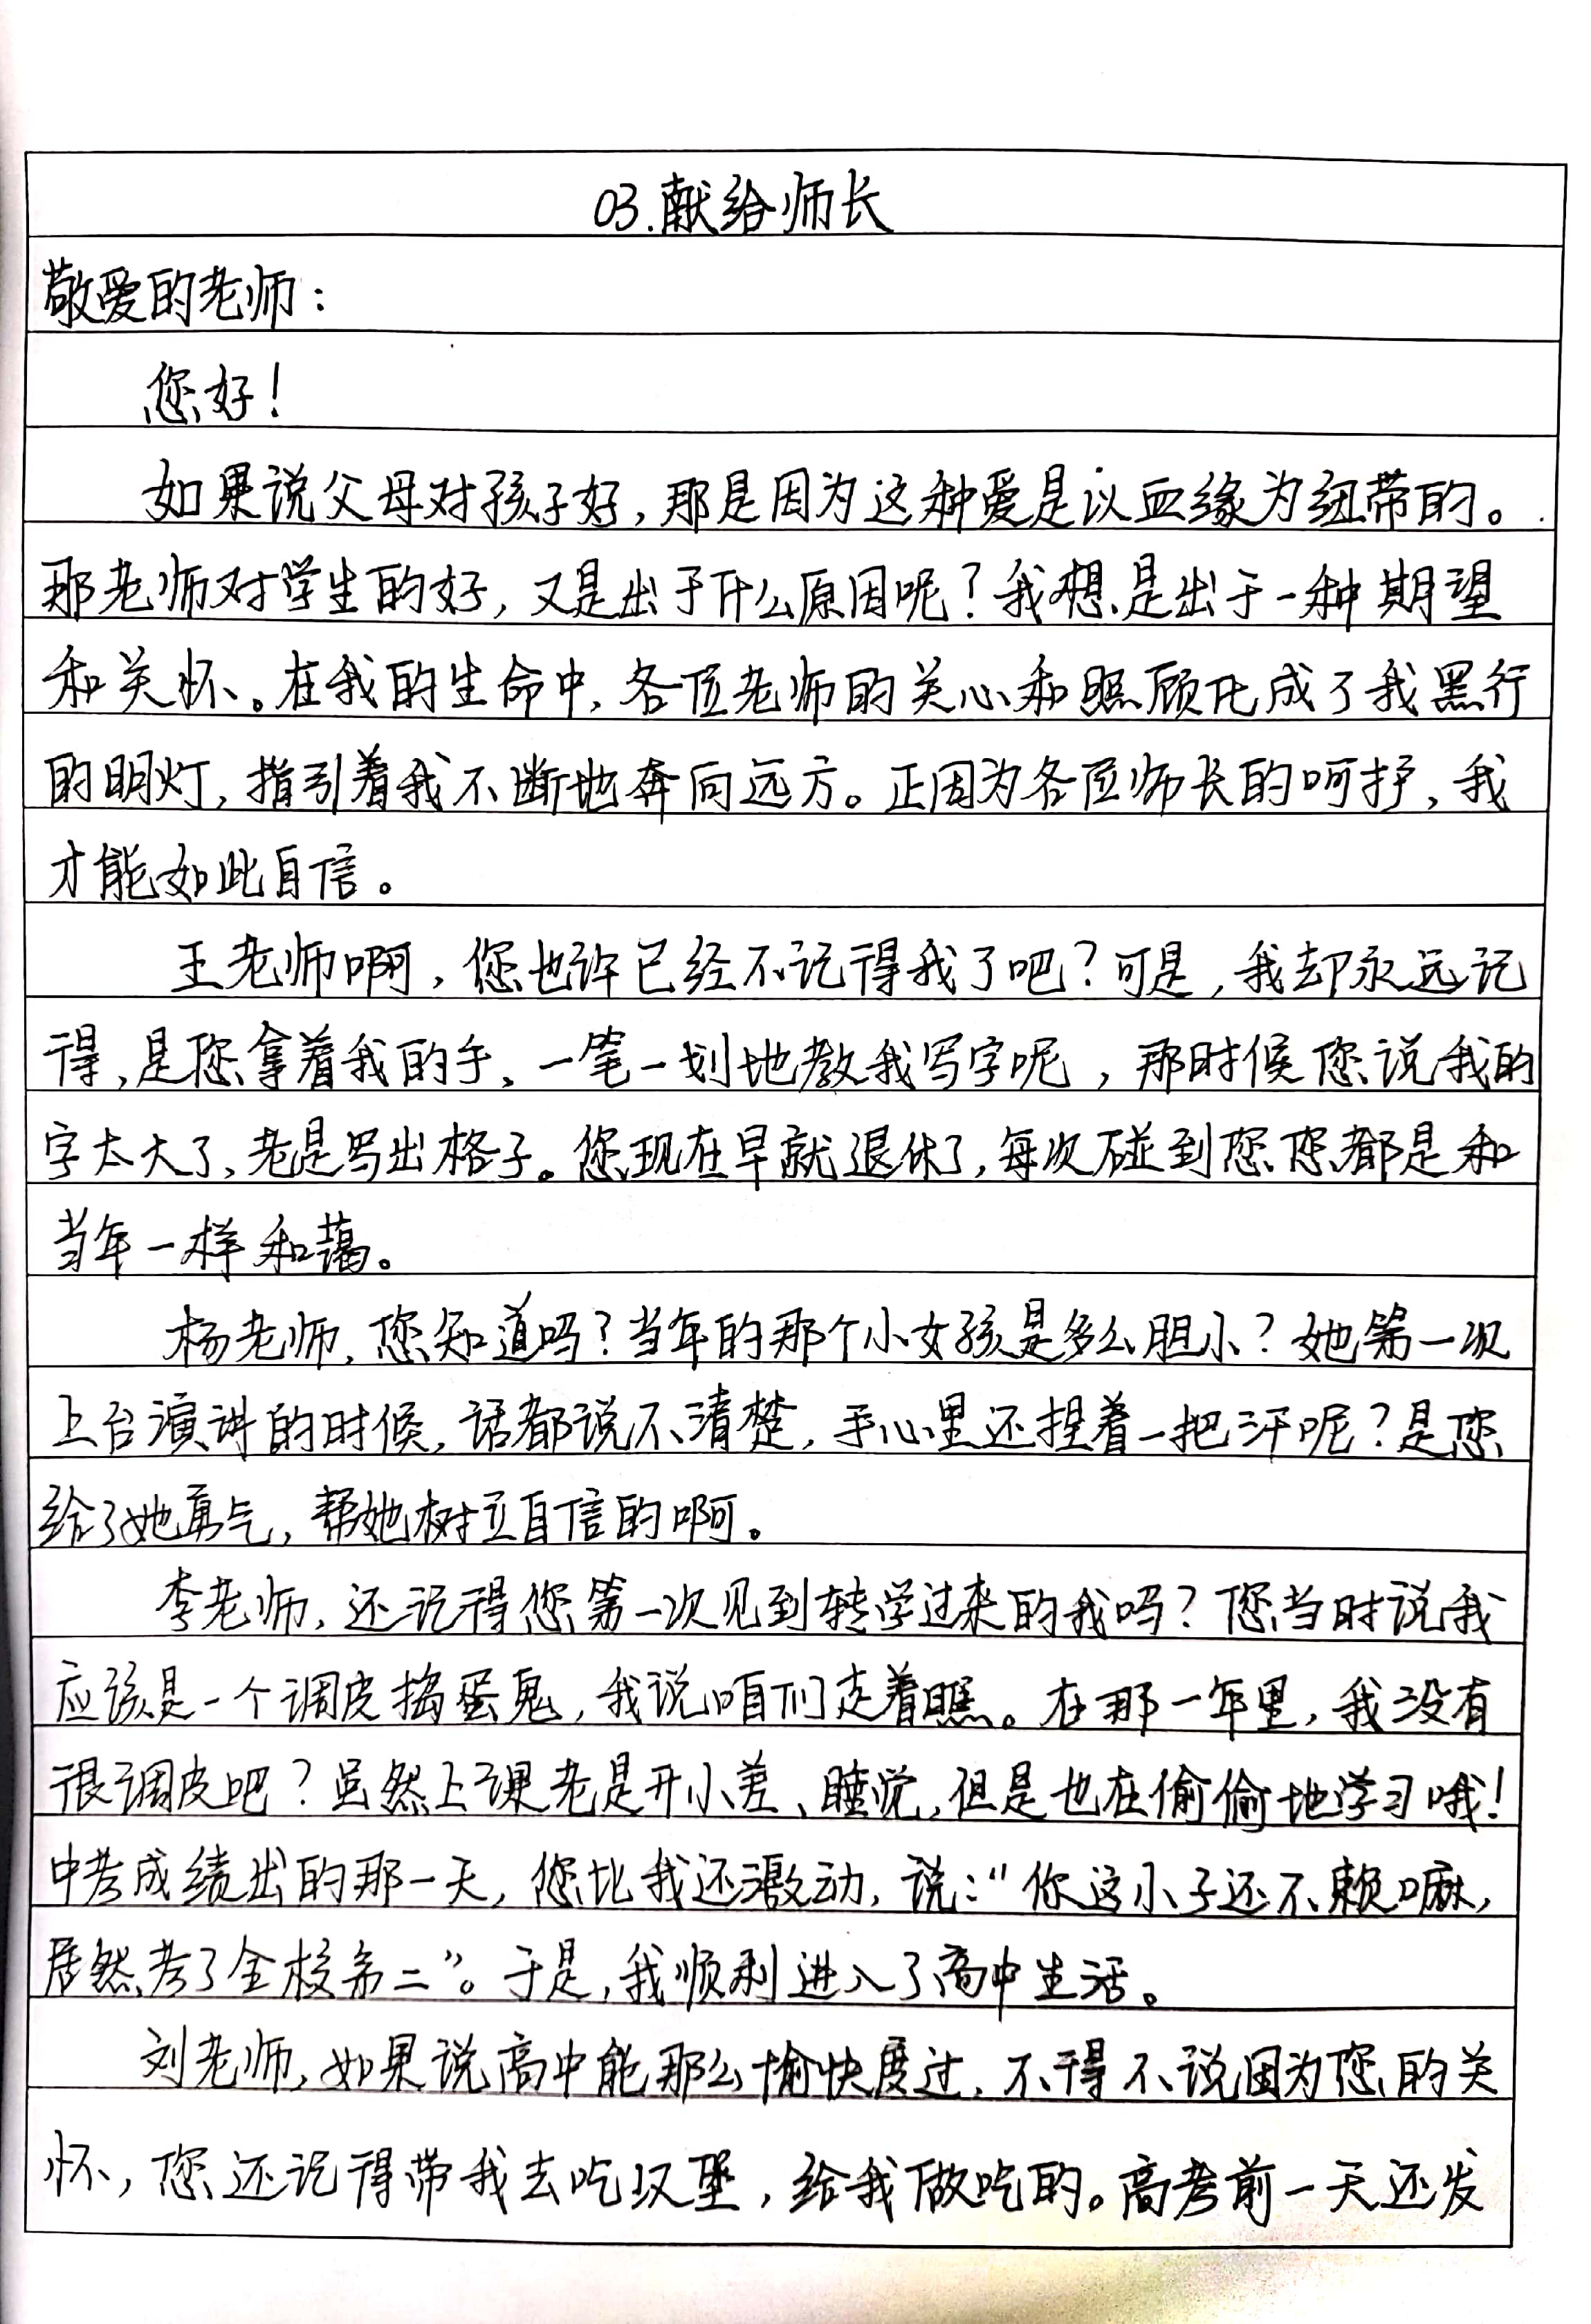 03.献给师长
敬爱的老师：
您好！
如果说父母对孩子好，那是因为这种爱是以血缘为纽带的。
那老师对学生的好，又是出于什么原因呢？我想是出于一种期望
和关怀。在我的生命中，各位老师的关心和照顾化成了我黑行
的明灯，指引着我不断地奔向远方。正因为各位师长的呵护，我
才能如此自信。
王老师啊，您也许已经不记得我了吧？可是，我却永远记
得，是您拿着我的手，一笔一划地教我写字呢，那时候您说我的
字太大了，老是写出格子。您现在早就退休了，每次碰到您您都是和
当年一样和蔼。
杨老师，您知道吗？当年的那个小女孩是多么胆小？她第一次
上台演讲的时候，话都说不清楚，手心里还捏着一把汗呢？是您
给了她勇气，帮她树立自信的啊。
李老师，还记得您第一次见到转学过来的我吗？您当时说我
应该是一个调皮捣蛋鬼，我说咱们走着瞧。在那一年里，我没有
很调皮吧？虽然上课老是开小差、睡觉，但是也在偷偷地学习哦！
中考成绩出的那一天，您比我还激动，说：“你这小子还不赖嘛，
居然考了全校第二”。于是，我顺利进入了高中生活。
刘老师，如果说高中能那么愉快度过，不得不说因为您的关
怀，您还记得带我去吃汉堡，给我做吃的。高考前一天还发